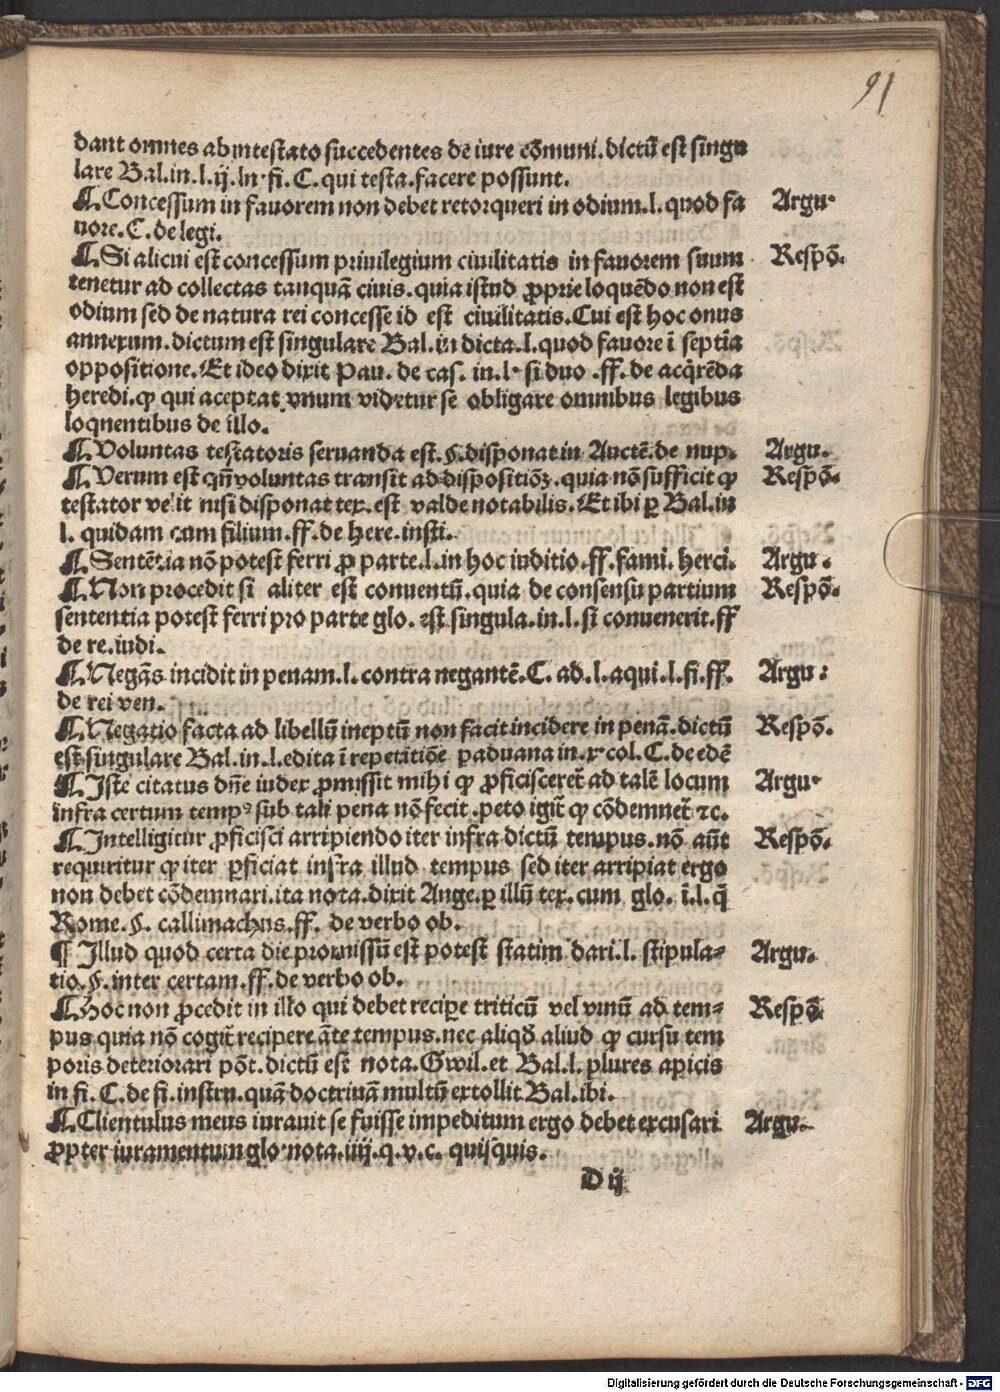 91
dant omnes ab intestato succedentes de iure cōmuni.dictū est singu
lare Bal.in.l.ij.in.fi.C.qui testa.facere possunt.
¶ Concessum in fauorem non debet retorqueri in odium.l.quod fa Argu.
uore.C.de legi.
¶ Si alicui est concessum priuilegium ciuilitatis in fauorem suum Respō.
tenetur ad collectas tanquā ciuis.quia istud ꝓprie loquēdo non est
odium sed de natura rei concesse id est ciuilitatis.Cui est hoc onus
annexum.dictum est singulare Bal.in dicta.l.quod fauore ī septīa
oppositione.Et ideo dixit Pau. de cas. in.l. si duo .ff.de acq̄rēda
heredi.ꝙ qui aceptat vnum videtur se obligare omnibus legibus
loquentibus de illo.
¶ Voluntas testatoris seruanda est.§.disponat in Auctē.de nup. Argu.
¶ Verum est qn̄ voluntas transit ad dispositiōꝫ.quia nō sufficit ꝙ Respō.
testator velit nisi disponat tex.est valde notabilis.Et ibi ꝑ Bal.in
l. quidam cum filium.ff.de here.insti.
¶ Sentētia nō potest ferri ꝓ parte.l.in hoc iuditio.ff.fami. herci. Argu.
¶ Non procedit si aliter est conuentū.quia de consensu partium Respō.
sententia potest ferri pro parte glo. est singula.in.l.si conuenerit.ff
de re.iudi.
¶ Negās incidit in penam.l.contra negantē.C. ad.l.aqui.l.fi.ff. Argu:
de rei ven.
¶ Negatio facta ad libellū ineptū non facit incidere in penā.dictū Respō.
est singulare Bal.in.l.edita ī repetitiōe paduana in.x.col.C.de edē
¶ Iste citatus dn̄e iudex ꝓmissit mihi ꝙ ꝓficisceret̄ ad talē locum Argu.
infra certum tempꝰ sub tali pena nō fecit.peto igit̄ ꝙ cōdemnet̄ ⁊c.
¶ Intelligitur ꝓficisci arripiendo iter infra dictū tempus.nō aūt Respō.
requiritur ꝙ iter ꝑficiat infra illud tempus sed iter arripiat ergo
non debet cōdemnari.ita nota.dixit Ange.ꝑ illū tex.cum glo. ī.l.q̄
Rome.§. callimachus.ff. de verbo ob.
¶ Illud quod certa die promissū est potest statim dari.l. stipula⸗ Argu.
tio.§.inter certam.ff.de verbo ob.
¶ Hoc non ꝓcedit in illo qui debet recipe triticū vel vinū ad tem⸗ Respō.
pus quia nō cogit̄ recipere āte tempus.nec aliqd̄ aliud ꝙ cursu tem
poris deteriorari pōt.dictū est nota.Gwil.et Bal.l.plures apicis
in fi.C.de fi.instru.quā doctrinā multū extollit Bal.ibi.
¶ Clientulus meus iurauit se fuisse impeditum ergo debet excusari Argu.
ꝓpter iuramentum glo.nota.iiij.q.v.c. quisquis.
D ij
Digitalisierung gefördert durch die Deutsche Forschungsgemeinschaft - DFG